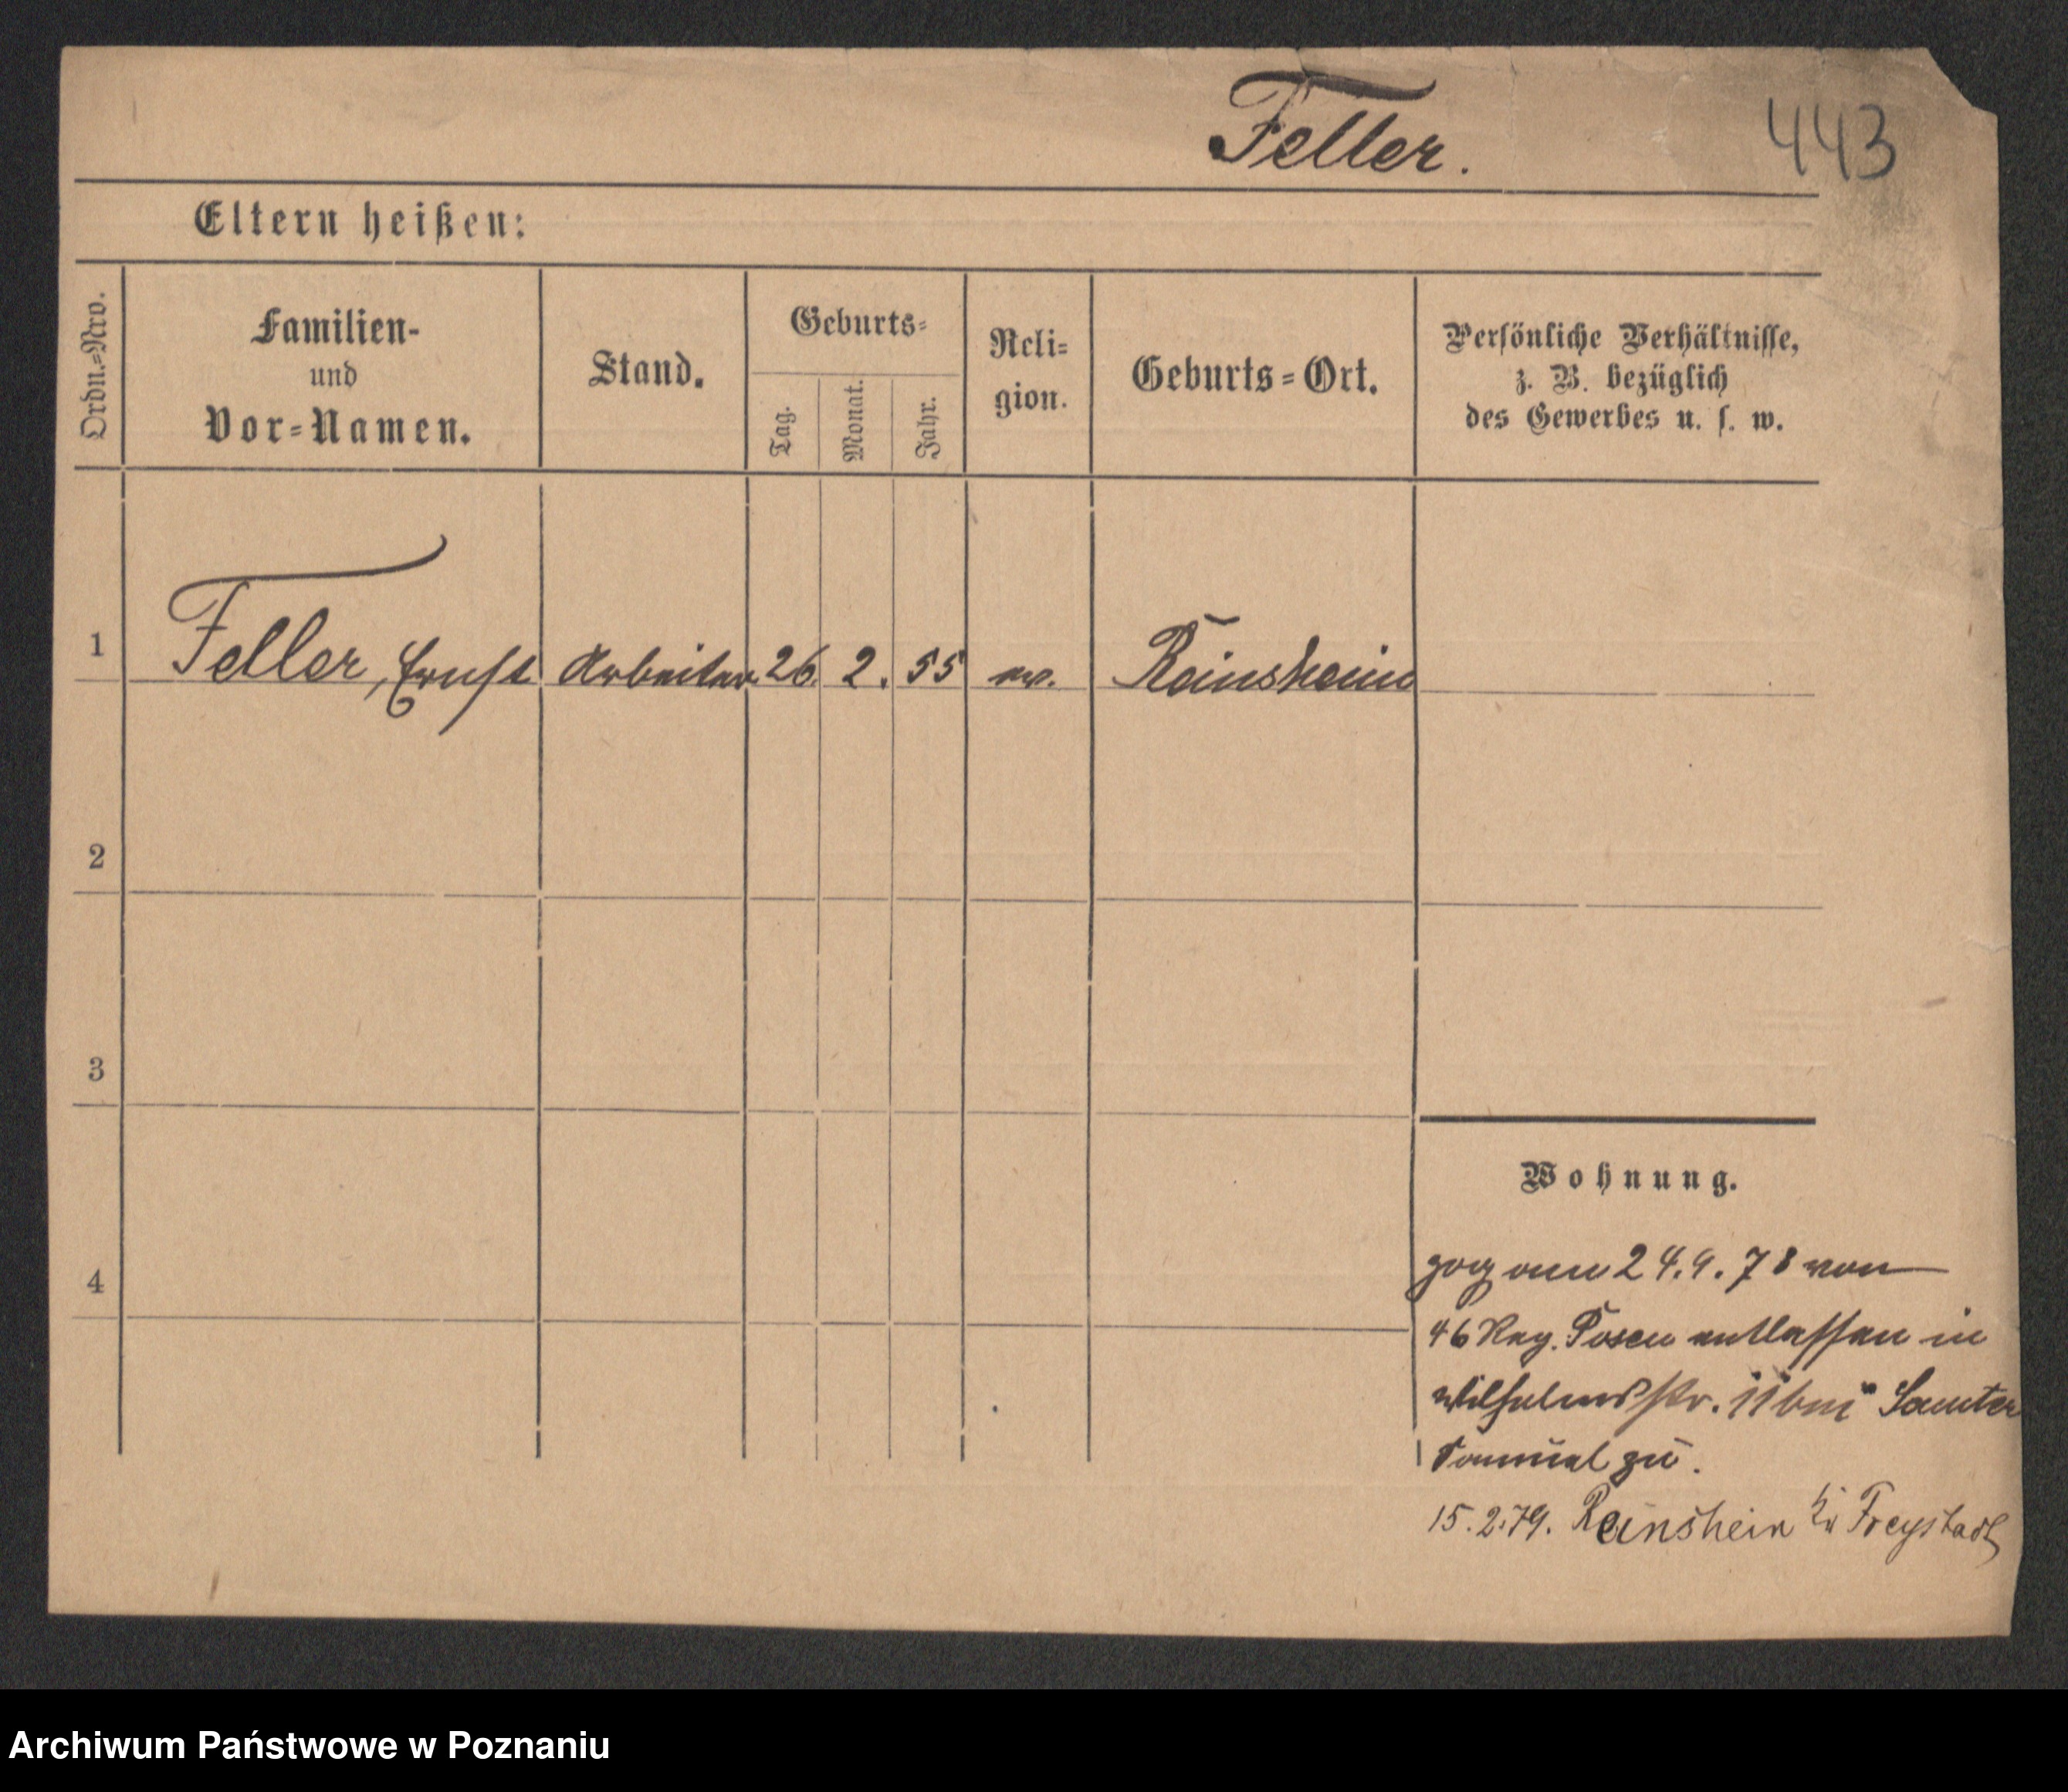 Feller.
443
Eltern heißen:
Ordn.=Nro.
Familien-
und
Vor=Namen.
Stand.
Geburts=
Tag.
Monat.
Jahr.
Reli=
gion.
Geburts=Ort.
Persönliche Verhältnisse,
z. B. bezüglich
des Gewerbes u. s. w.
1 Feller, Ernst Arbeiter 26. 2. 55 ev. Reinshain
2
3
4
Wohnung.
zog am 24.9.78 von
46 Reg. Posen entlassen in
Wilhelmsstr. 11 bei Samter
zu.
15.2.79. Reinshein Freystadt
Archiwum Państwowe w Poznaniu